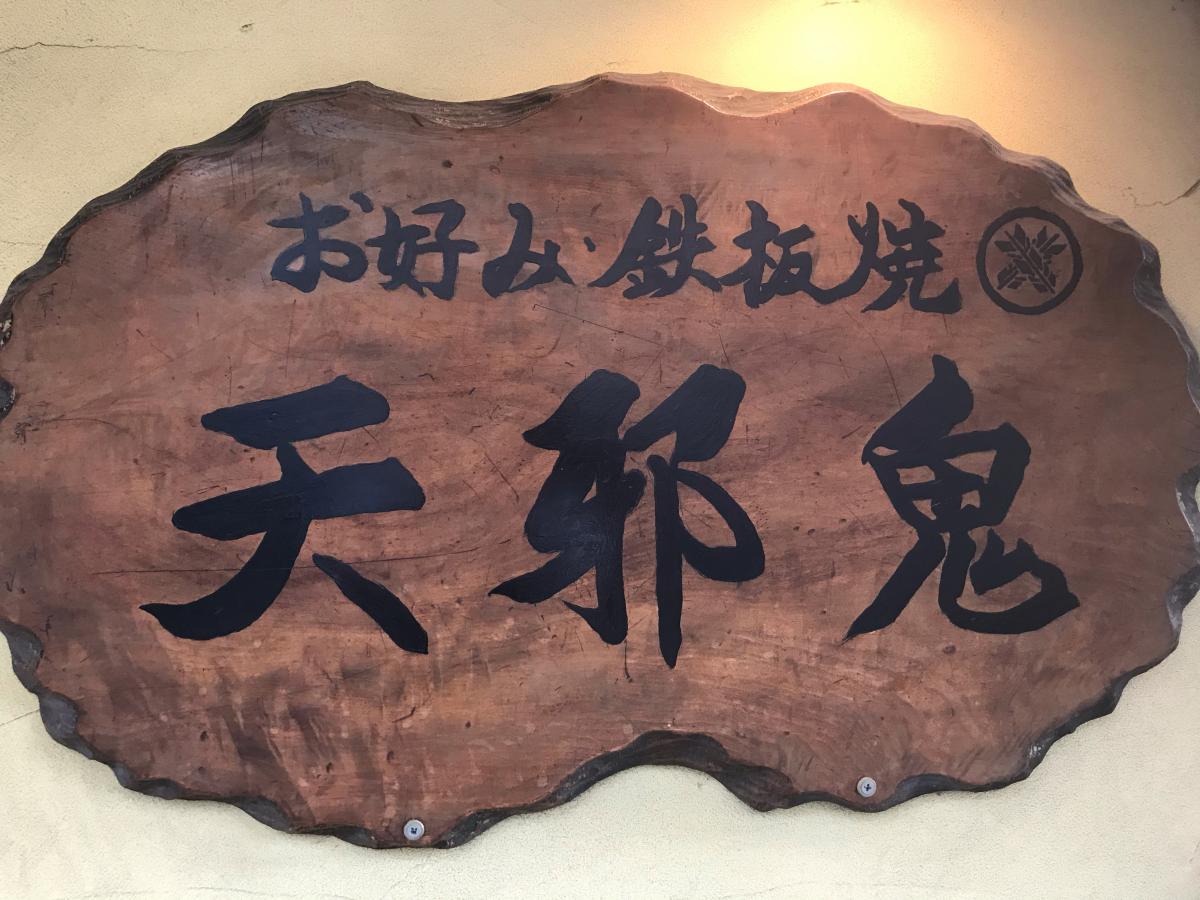 お好み鉄板焼
天邪鬼